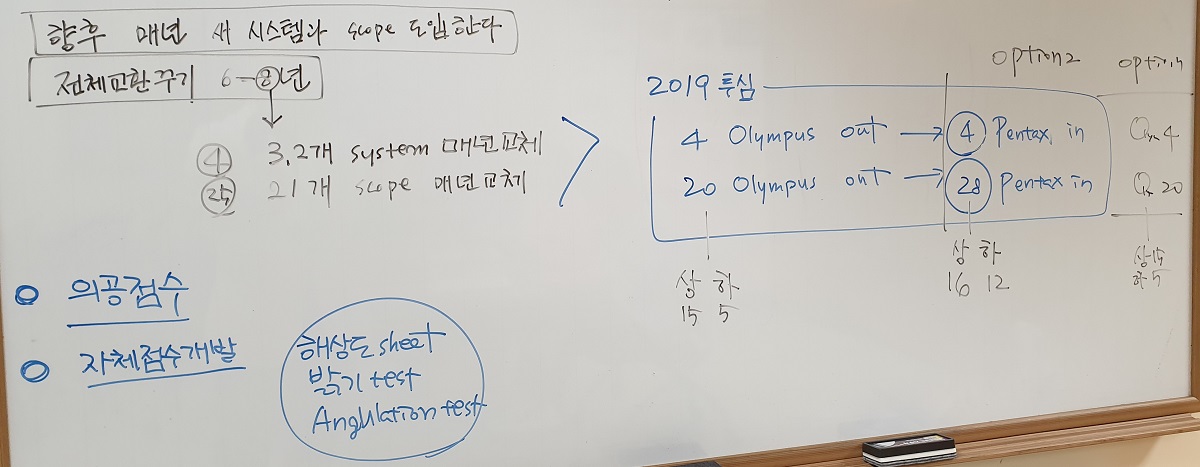 향후 매년 새 시스템과 scope 도입한다
전체교환주기 6-8년
④ 3.2개 system 매년교체
㉕ 21개 scope 매년교체
option2
option1
2019 투심
4 Olympus out → ④ Pentax in
20 Olympus out → ㉘ Pentax in
4
20
상 하
15 5
상 하
16 12
상 15
하 5
의공점수
자체점수개발
해상도 sheet
밝기 test
Angulation test